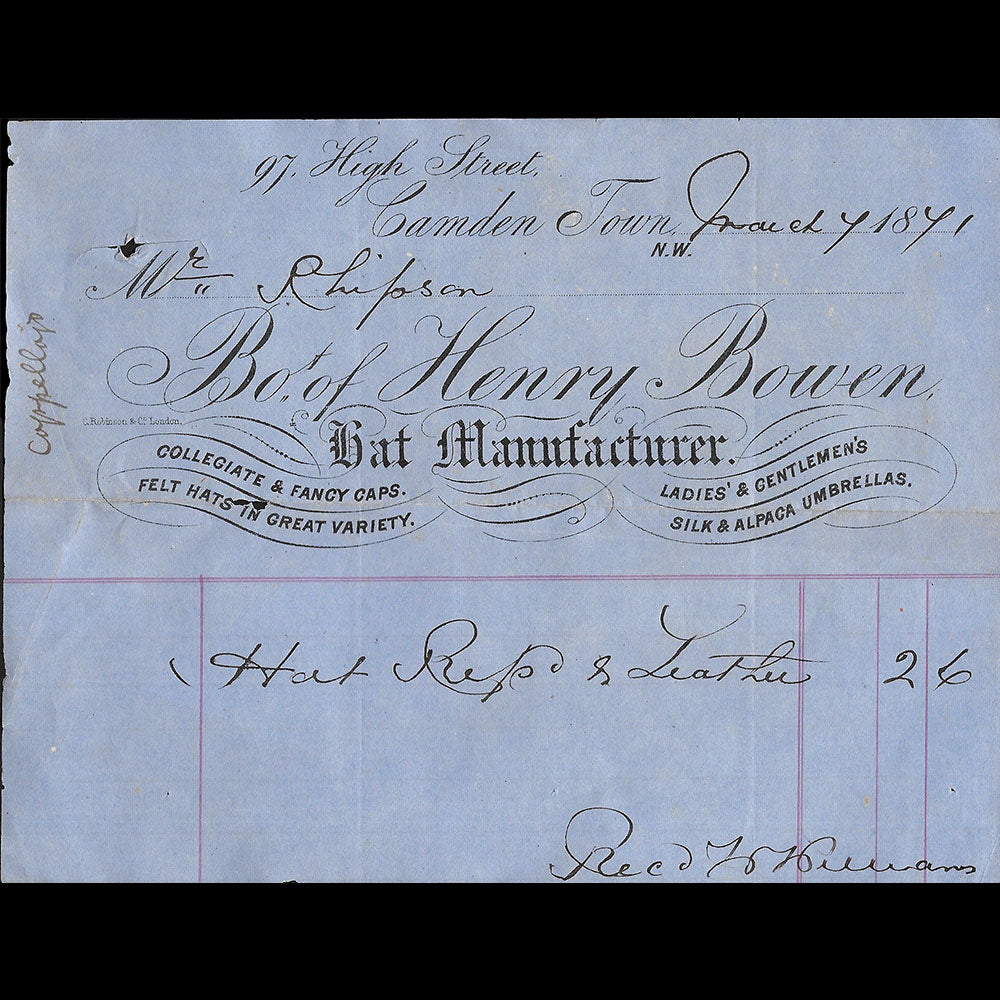 97, High Street,
Camden Town, March 7 1871
N.W.
Mr
Bot. of Henry Bowen,
C. Robinson & Co. London.
Hat Manufacturer.
COLLEGIATE & FANCY CAPS.
FELT HATS IN GREAT VARIETY.
LADIES' & GENTLEMEN'S
SILK & ALPACA UMBRELLAS.
Hat Repd & Leather 2 6
Recd W Williams
coppellajo